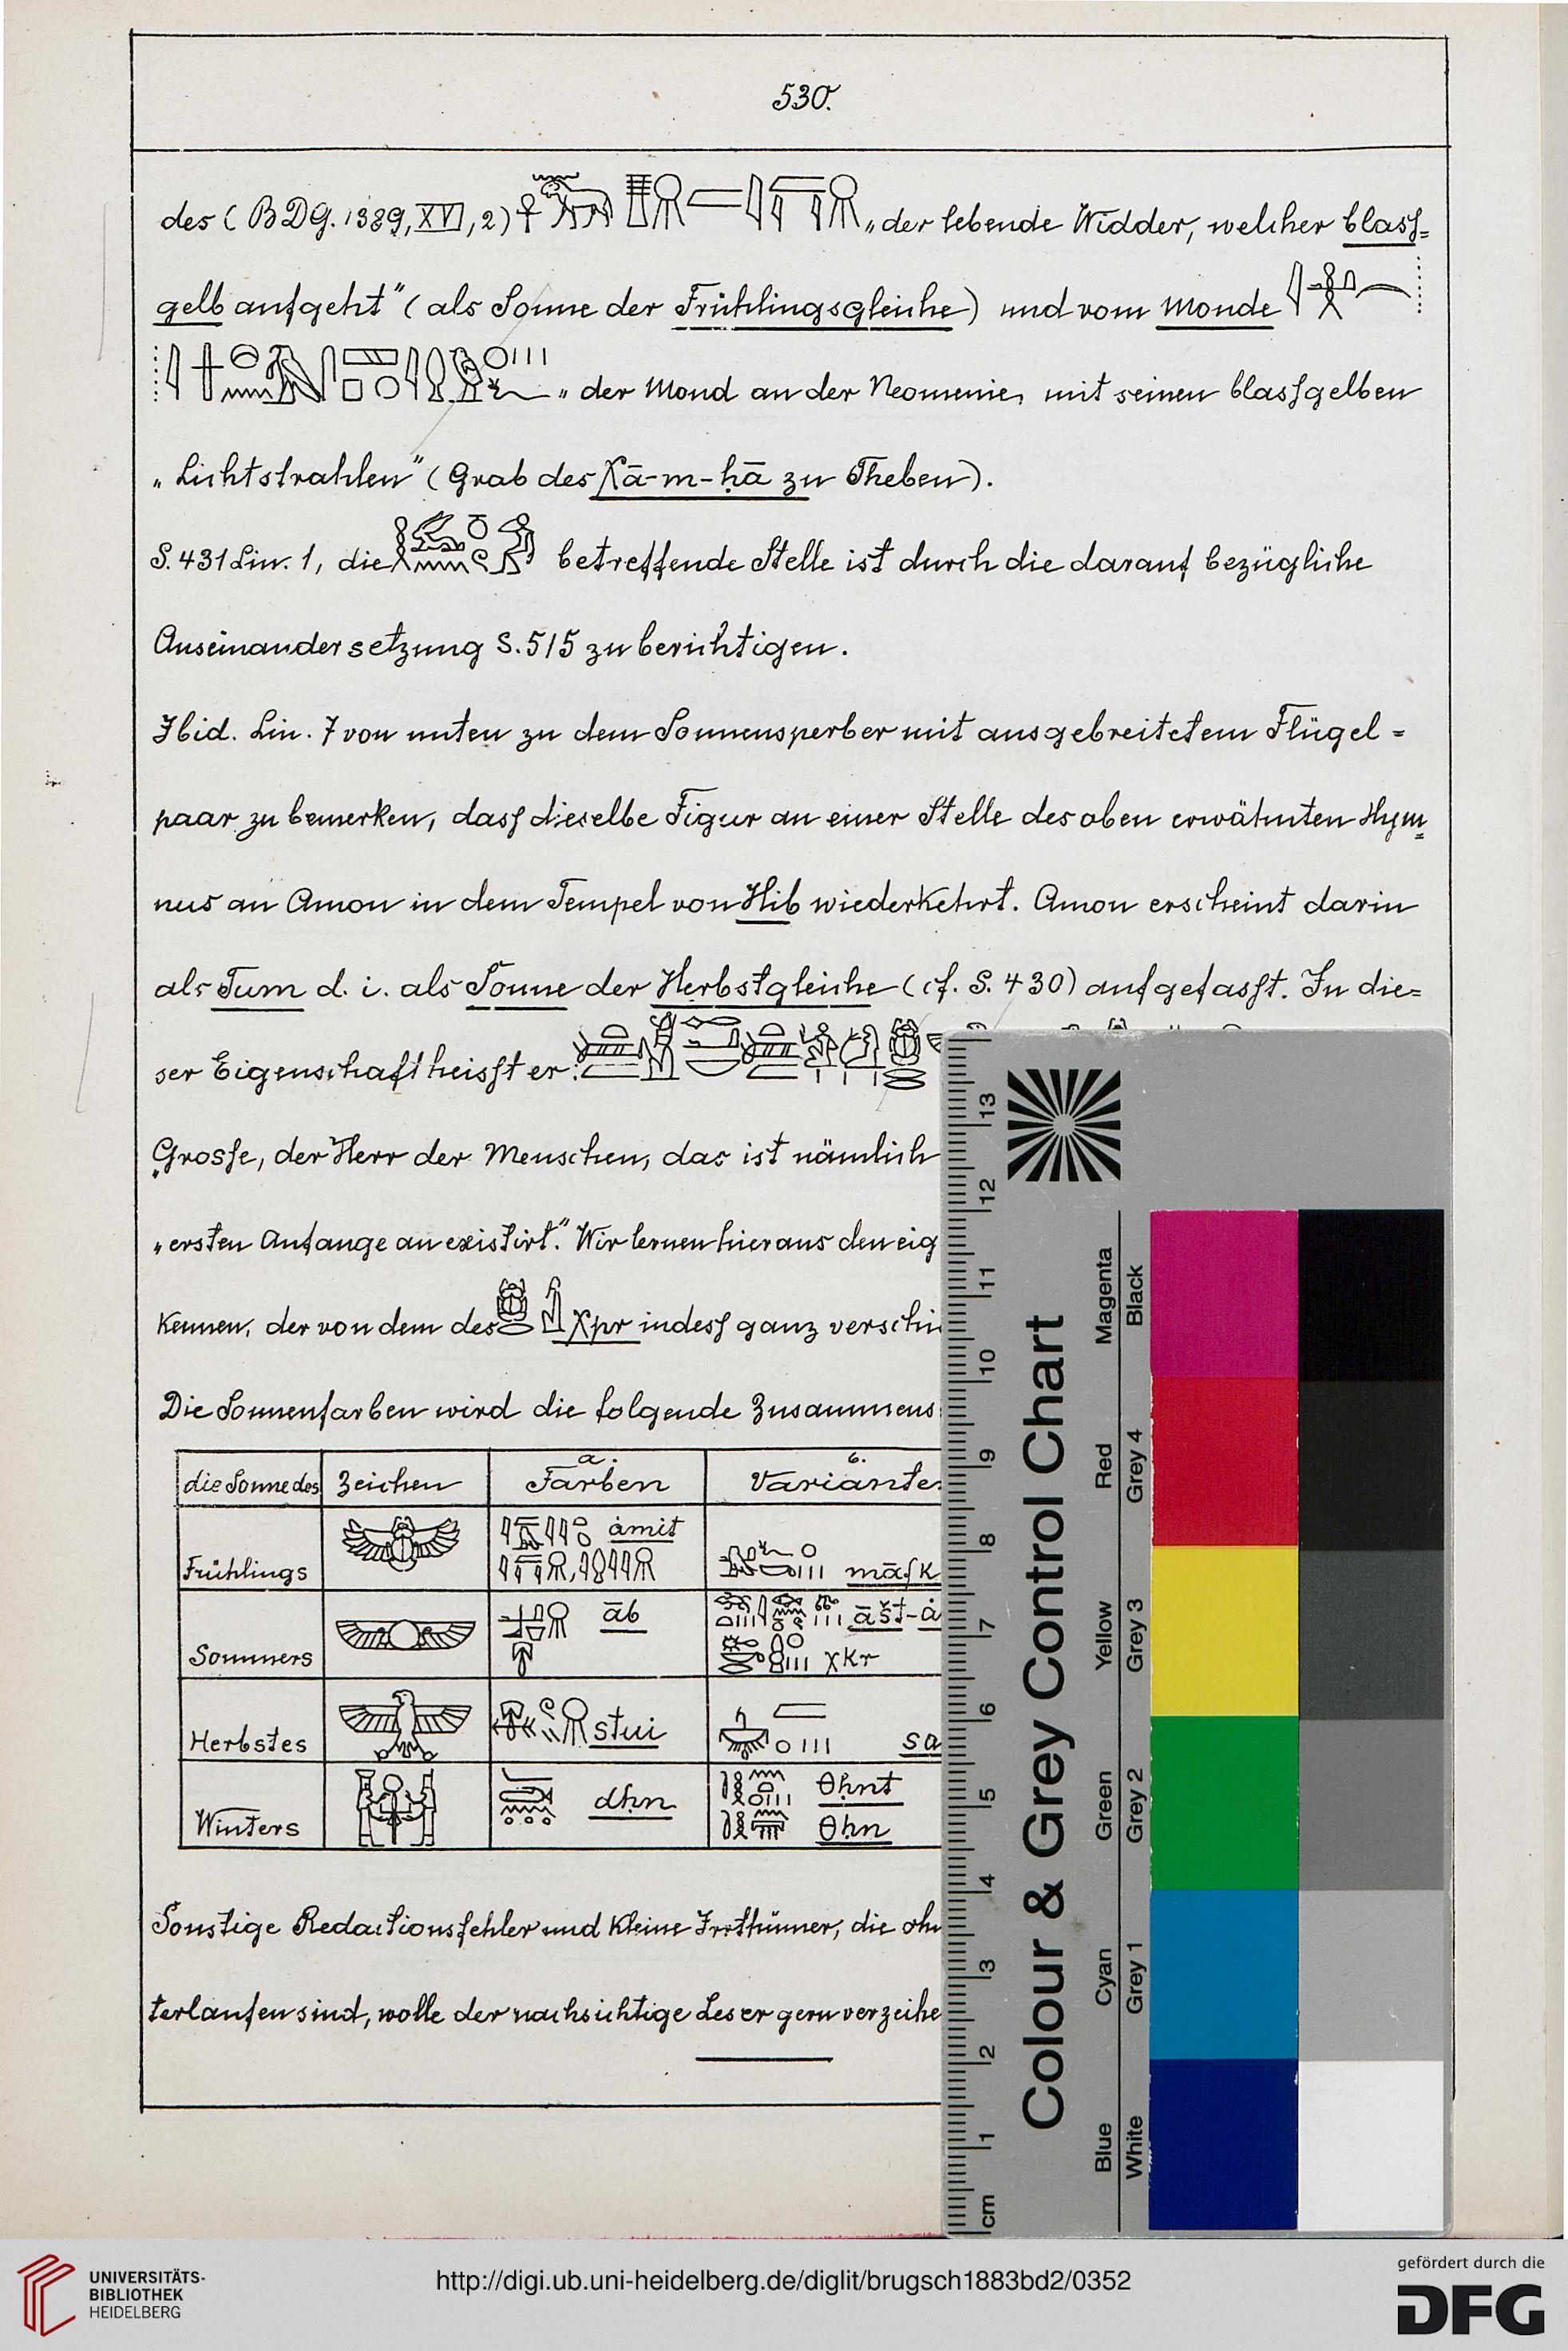 530.
des (BDG. 1389, XVI, 2) „der lebende Widder, welcher blass=
gelb aufgeht" (als Sonne der Frühlingsgleiche) und vom Monde
„der Mond an der Neomenie, mit seinen blassgelben
„Lichtstrahlen" (Grab des Χā-m-ḥā zu Theben).
S. 431 Lin. 1, die betreffende Stelle ist durch die darauf bezügliche
Auseinandersetzung S. 515 zu berichtigen.
Ibid. Lin. 7 von unten zu dem Sonnensperber mit ausgebreitetem Flügel=
paar zu bemerken, dass dieselbe Figur an einer Stelle des oben erwähnten Hym=
nus an Amon in dem Tempel von Hib wiederkehrt. Amon erscheint darin
als Tum d. i. als Sonne der Herbstgleiche (cf. S. 430) aufgefasst. In die=
ser Eigenschaft heisst er:
Grosse, der Herr der Menschen, das ist nämlich
„ersten Anfange an existirt." Wir lernen hieraus den eig
kennen, der von dem des Χpr indess ganz verschi
Die Sonnenfarben wird die folgende Zusammens
die Sonne des Zeichen a. Farben b. Variante
Frühlings ȧmit māfk
Sommers āb āšt-ȧ
χkr
Herbstes stui sa
Winters dḥn Θḥnt
Θḥn
Sonstige Redactionsfehler und kleine Irrthümer, die oh
terlaufen sind, wolle der nachsichtige Leser gern verzeihe
Colour & Grey Control Chart
Magenta Red Yellow Green Cyan Blue
Black Grey 4 Grey 3 Grey 2 Grey 1 White
13 12 11 10 9 8 7 6 5 4 3 2 1 cm
UNIVERSITÄTS-
BIBLIOTHEK
HEIDELBERG
http://digi.ub.uni-heidelberg.de/diglit/brugsch1883bd2/0352
gefördert durch die
DFG